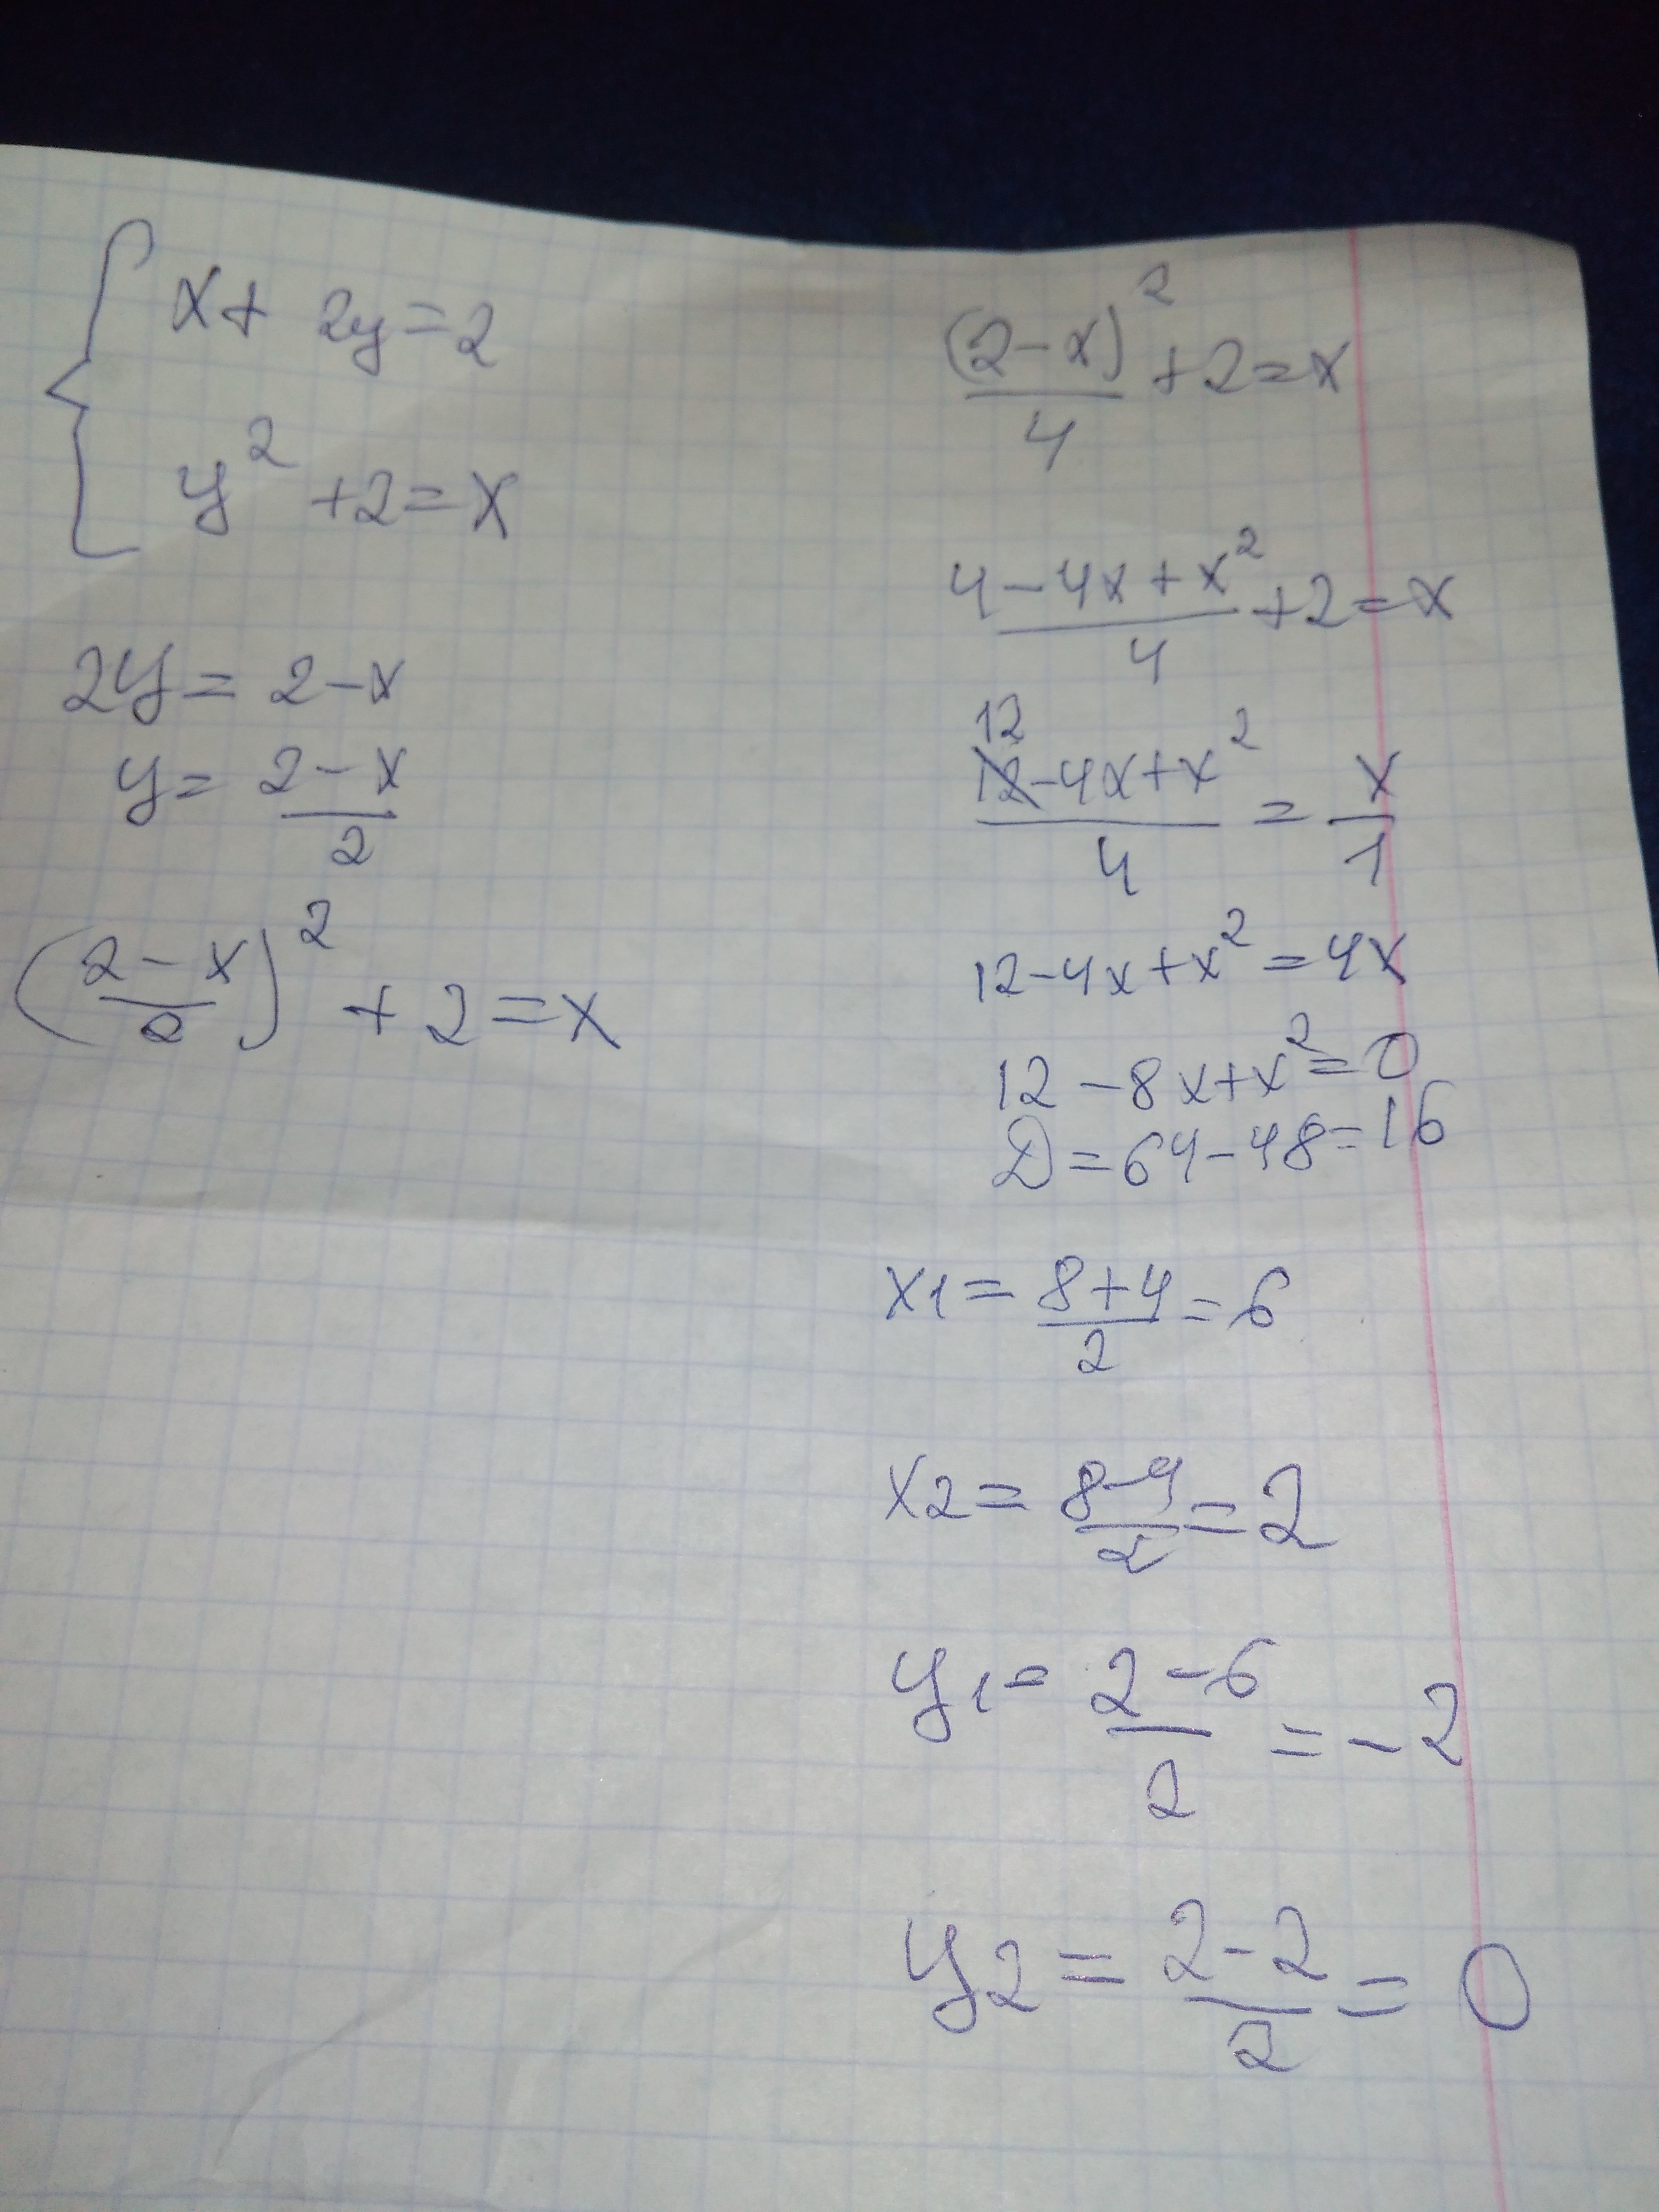 x + 2y = 2
y² + 2 = x
2y = 2 - x
y = (2 - x)/2
((2 - x)/2)² + 2 = x
(2 - x)²/4 + 2 = x
(4 - 4x + x²)/4 + 2 = x
12
(12 - 4x + x²)/4 = x/1
12 - 4x + x² = 4x
12 - 8x + x² = 0
D = 64 - 48 = 16
x1 = (8 + 4)/2 = 6
x2 = (8 - 4)/2 = 2
y1 = (2 - 6)/2 = -2
y2 = (2 - 2)/2 = 0